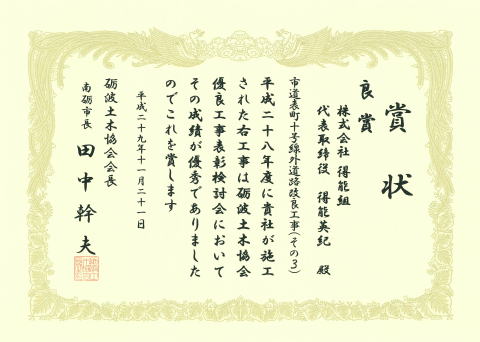 賞状
良賞
株式会社 得能組
代表取締役 得能英紀 殿
市道表町十号線外道路改良工事(その3)
平成二十八年度に貴社が施工
された右工事は砺波土木協会
優良工事表彰検討会において
その成績が優秀でありました
のでこれを賞します
平成二十九年十一月二十一日
砺波土木協会会長
南砺市長 田中幹夫